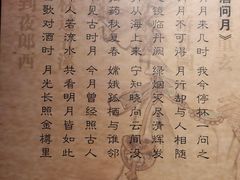 酒问月》
月来几时 我今停杯一问之
月不可得 月行却与人相随
镜临丹阙 绿烟灭尽清辉发
从海上来 宁知晓向云间没
药秋复春 嫦娥孤栖与谁邻
见古时月 今月曾经照古人
人若流水 共看明月皆如此
歌对酒时 月光长照金樽里
到夜郎西